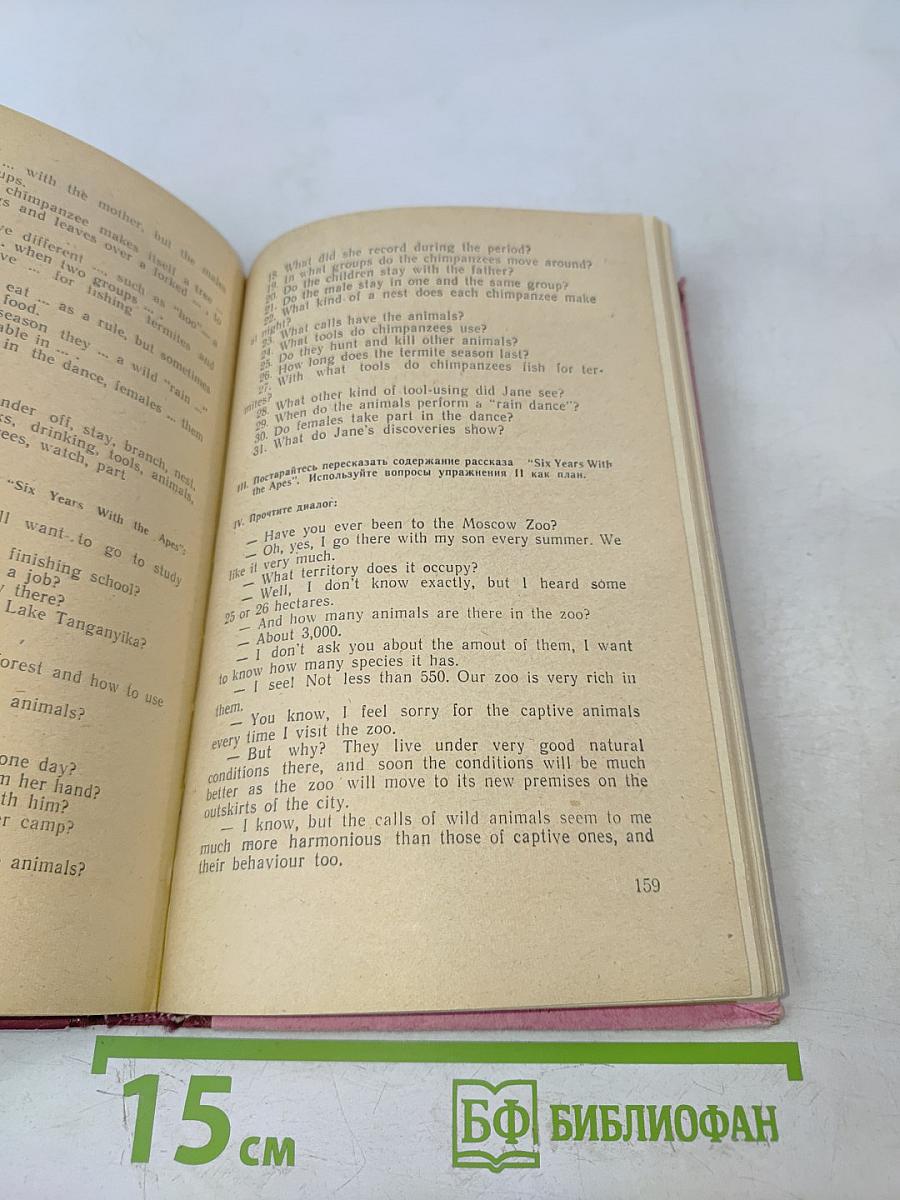 ... with the mother, but the males
ups.
chimpanzee makes itself a tree
gs and leaves over a forked ... , to
ve different ... , such as "hoo"— a
... when two groups ... .
ve ... for fishing termites and
eat ... as a rule, but sometimes
food.
season they ... a wild "rain ..."
able in ... .
in the dance, females ... them
nder off, stay, branch, nest,
ks, drinking, tools, animals,
ees, watch, part
"Six Years With the Apes":
ll want to go to study
finishing school?
a job?
y there?
Lake Tanganyika?
orest and how to use
animals?
one day?
m her hand?
th him?
er camp?
animals?
18. What did she record during the period?
19. In what groups do the chimpanzees move around?
20. Do the children stay with the father?
21. Do the male stay in one and the same group?
22. What kind of a nest does each chimpanzee make
at night?
23. What calls have the animals?
24. What tools do chimpanzees use?
25. Do they hunt and kill other animals?
26. How long does the termite season last?
27. With what tools do chimpanzees fish for ter-
mites?
28. What other kind of tool-using did Jane see?
29. When do the animals perform a "rain dance"?
30. Do females take part in the dance?
31. What do Jane's discoveries show?
III. Постарайтесь пересказать содержание рассказа "Six Years With
the Apes". Используйте вопросы упражнения II как план.
IV. Прочтите диалог:
— Have you ever been to the Moscow Zoo?
— Oh, yes, I go there with my son every summer. We
like it very much.
— What territory does it occupy?
— Well, I don't know exactly, but I heard some
25 or 26 hectares.
— And how many animals are there in the zoo?
— About 3,000.
— I don't ask you about the amout of them, I want
to know how many species it has.
— I see! Not less than 550. Our zoo is very rich in
them.
— You know, I feel sorry for the captive animals
every time I visit the zoo.
— But why? They live under very good natural
conditions there, and soon the conditions will be much
better as the zoo will move to its new premises on the
outskirts of the city.
— I know, but the calls of wild animals seem to me
much more harmonious than those of captive ones, and
their behaviour too.
159
15 см
БФ БИБЛИОФАН